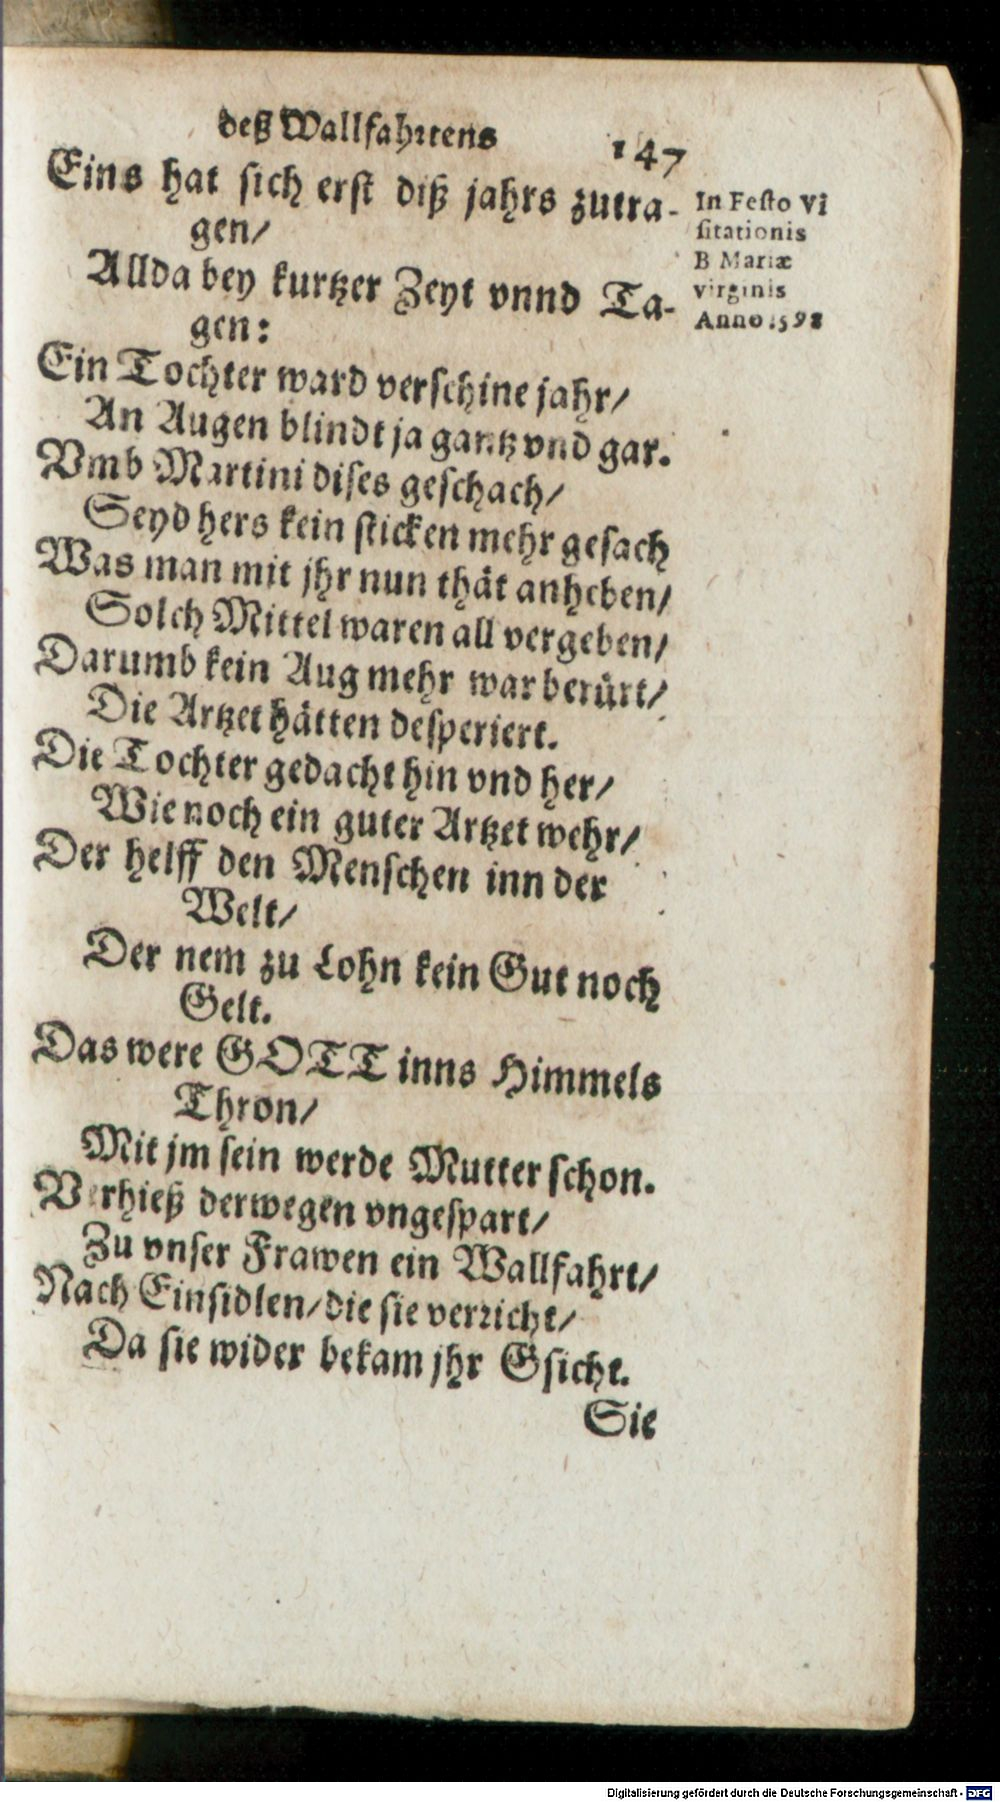 deß Wallfahrtens 147
Eins hat sich erst diß jahrs zutra-
gen/
Allda bey kurtzer Zeyt vnnd Ta-
gen:
Ein Tochter ward verschine jahr/
An Augen blindt ja gantz vnd gar.
Vmb Martini dises geschach/
Seyd hers kein sticken mehr gesach
Was man mit jhr nun thät anheben/
Solch Mittel waren all vergeben/
Darumb kein Aug mehr war berürt/
Die Artzet hätten desperiert.
Die Tochter gedacht hin vnd her/
Wie noch ein guter Artzet wehr/
Der helff den Menschen inn der
Welt/
Der nem zu Lohn kein Gut noch
Gelt.
Das were GOTT inns Himmels
Thron/
Mit jm sein werde Mutter schon.
Verhieß derwegen vngespart/
Zu vnser Frawen ein Wallfahrt/
Nach Einsidlen/die sie verricht/
Da sie wider bekam jhr Gsicht.
Sie
In Festo Vi
sitationis
B Mariæ
virginis
Anno 1598
Digitalisierung gefördert durch die Deutsche Forschungsgemeinschaft - DFG